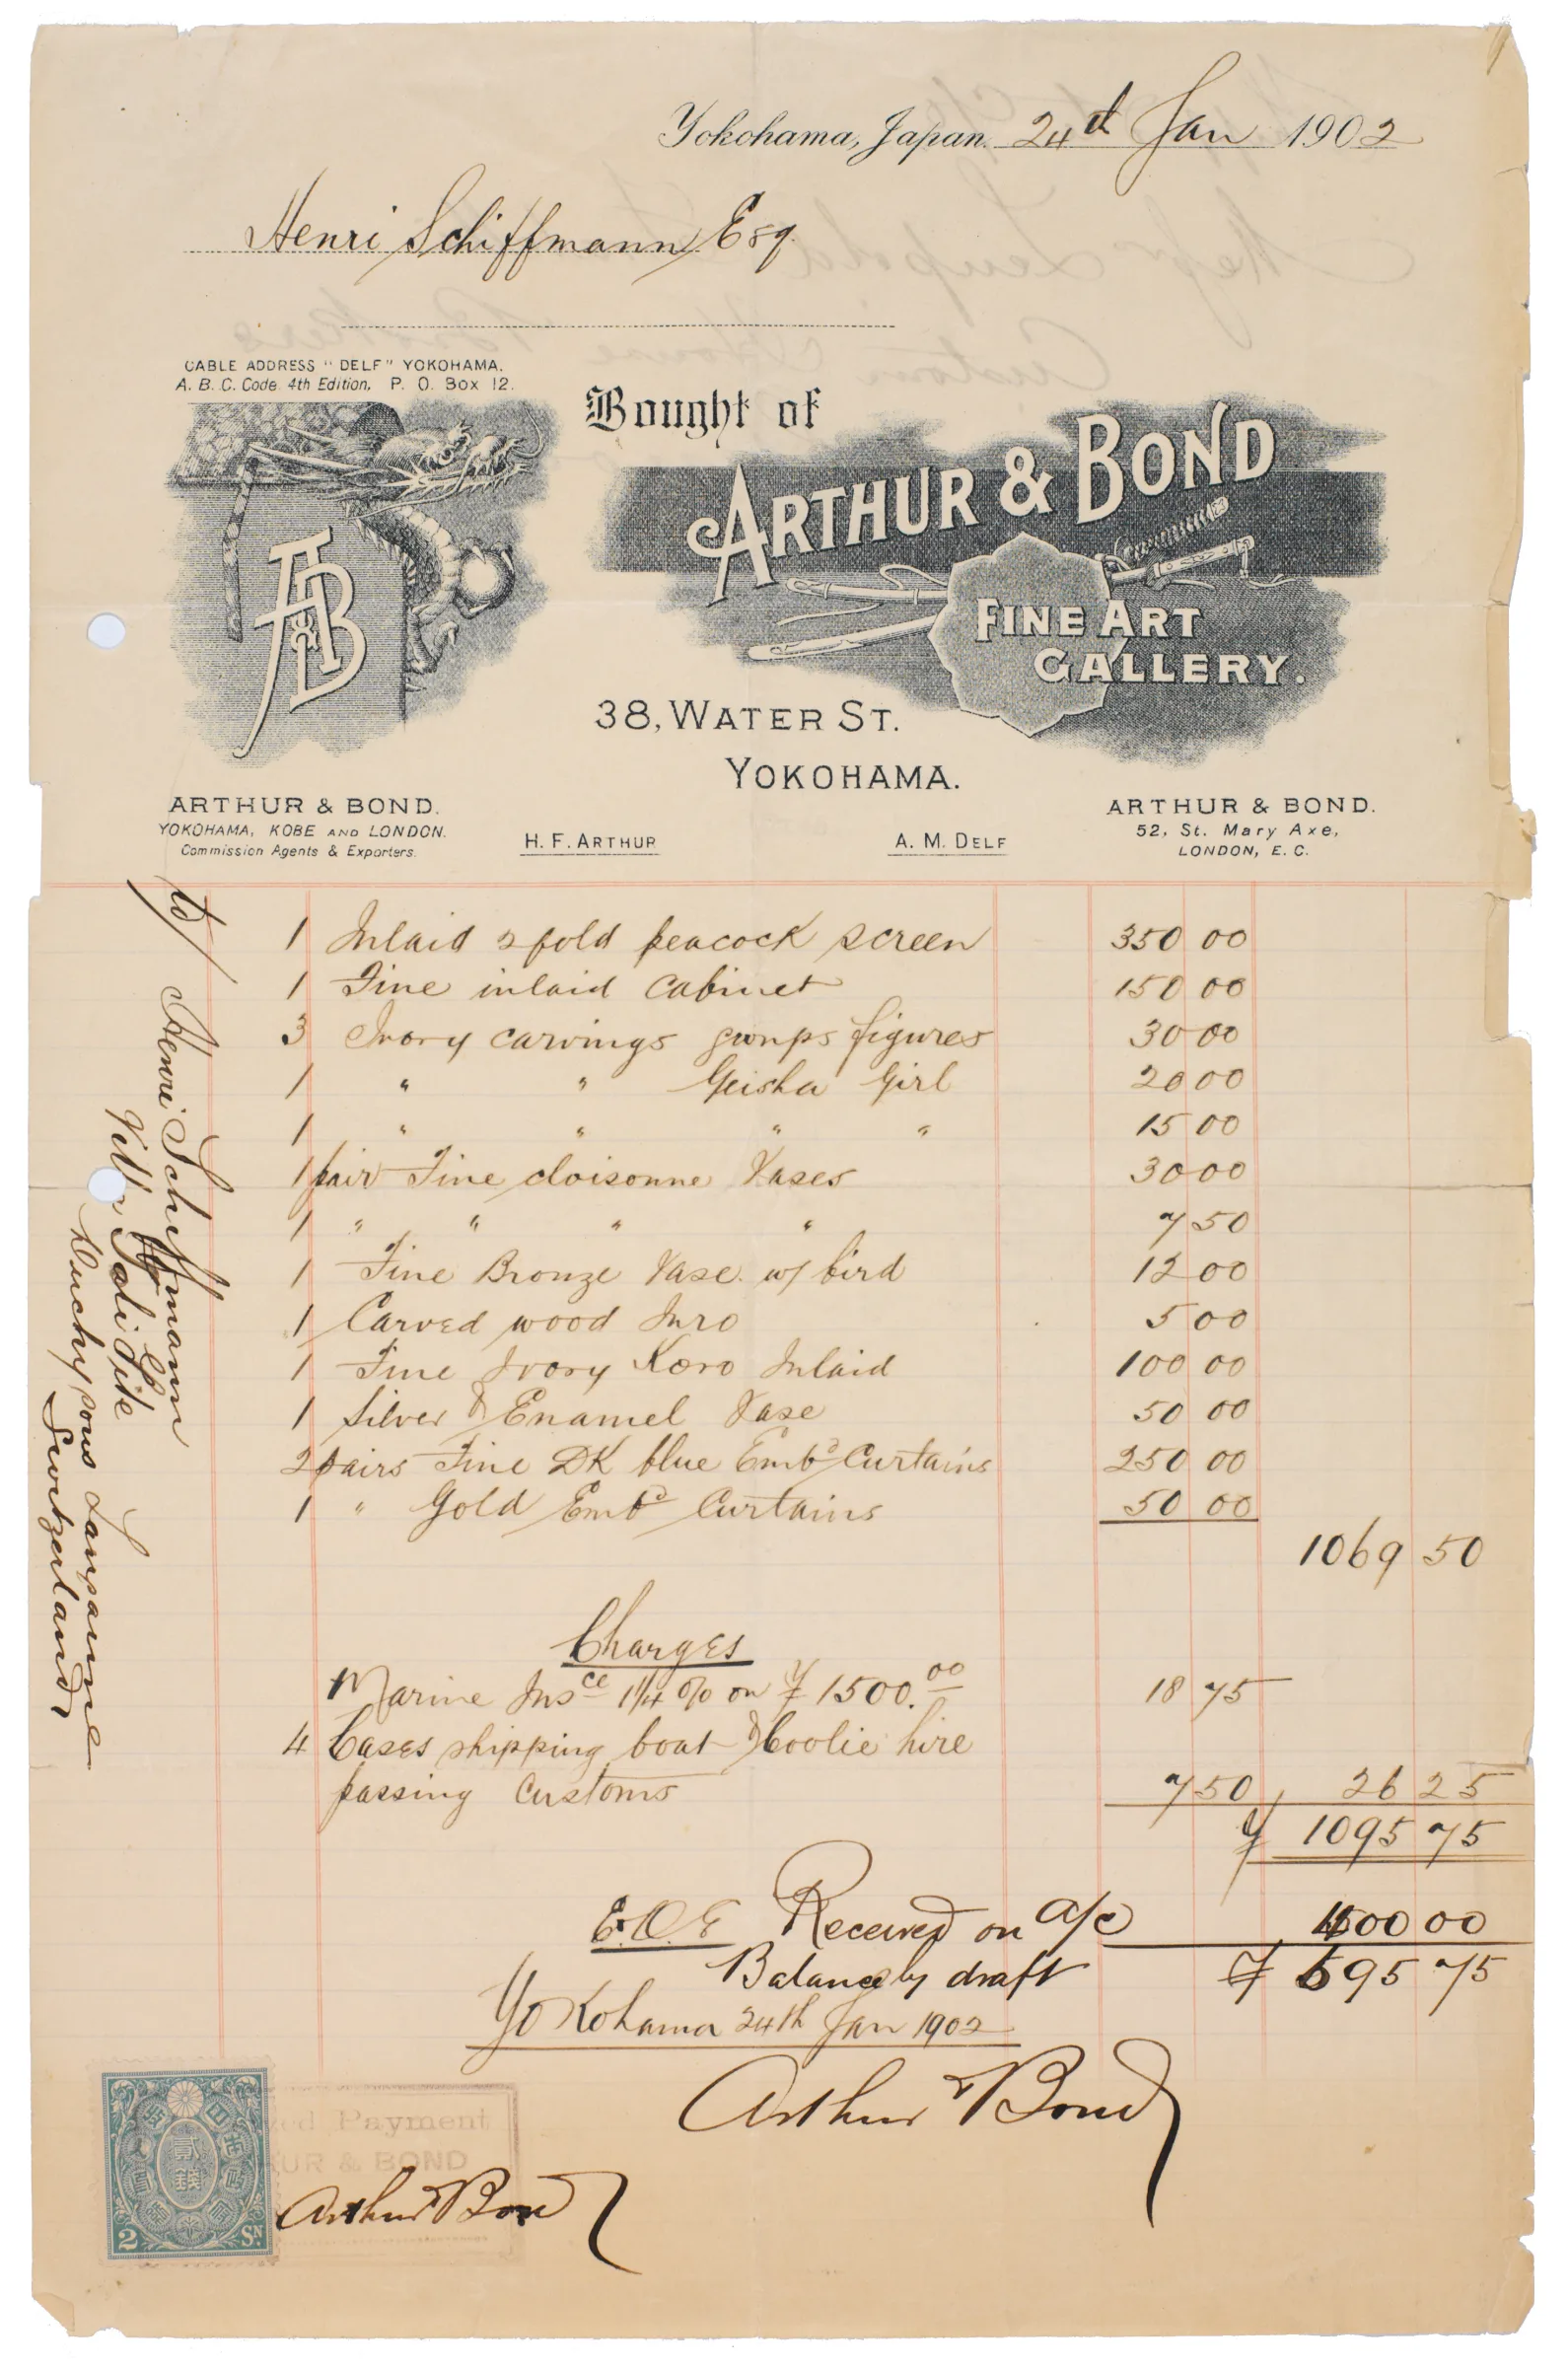 Yokohama, Japan. 24th Jan 1902
Henri Schiffmann Esq.
CABLE ADDRESS "DELF" YOKOHAMA.
A. B. C. Code. 4th Edition. P. O. Box 12.
Bought of
ARTHUR & BOND
FINE ART
GALLERY.
AB
38, WATER ST.
YOKOHAMA.
ARTHUR & BOND.
YOKOHAMA, KOBE AND LONDON.
Commission Agents & Exporters.
H. F. ARTHUR
A. M. DELF
ARTHUR & BOND.
52, St. Mary Axe,
LONDON, E. C.
1 Inlaid 2 fold peacock screen 350 00
1 Fine inlaid Cabinet 150 00
3 Ivory carvings groups figures 30 00
1 " " Geisha Girl 20 00
1 " " " " 15 00
1 pair Fine cloisonne Vases 30 00
1 " " " " 7 50
1 Fine Bronze Vase w/ bird 12 00
1 Carved wood Inro 5 00
1 Fine Ivory Koro Inlaid 100 00
1 Silver & Enamel Vase 50 00
2 pairs Fine DK blue Embd Curtains 250 00
1 " Gold Embd Curtains 50 00
1069 50
Charges
Marine Insce 1 1/4 % on ¥ 1500.00 18 75
4 Cases shipping boat & Coolie hire
passing Customs 7 50 26 25
¥ 1095 75
E.O.E Received on a/c 400 00
Balance by draft ¥ 695 75
Yokohama 24th Jan 1902
Arthur & Bond
ed Payment
UR & BOND
Arthur & Bond
貳錢
2 SN
to/
Henri Schiffmann
Villa
Ouchy sous Lausanne
Switzerland